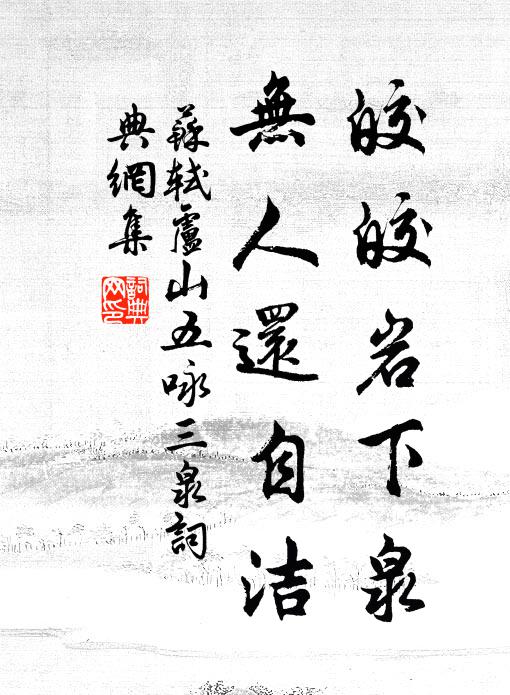 皎皎岩下泉
無人還自洁
蘇軾廬山五咏三泉詞
典網集
詞典
网印